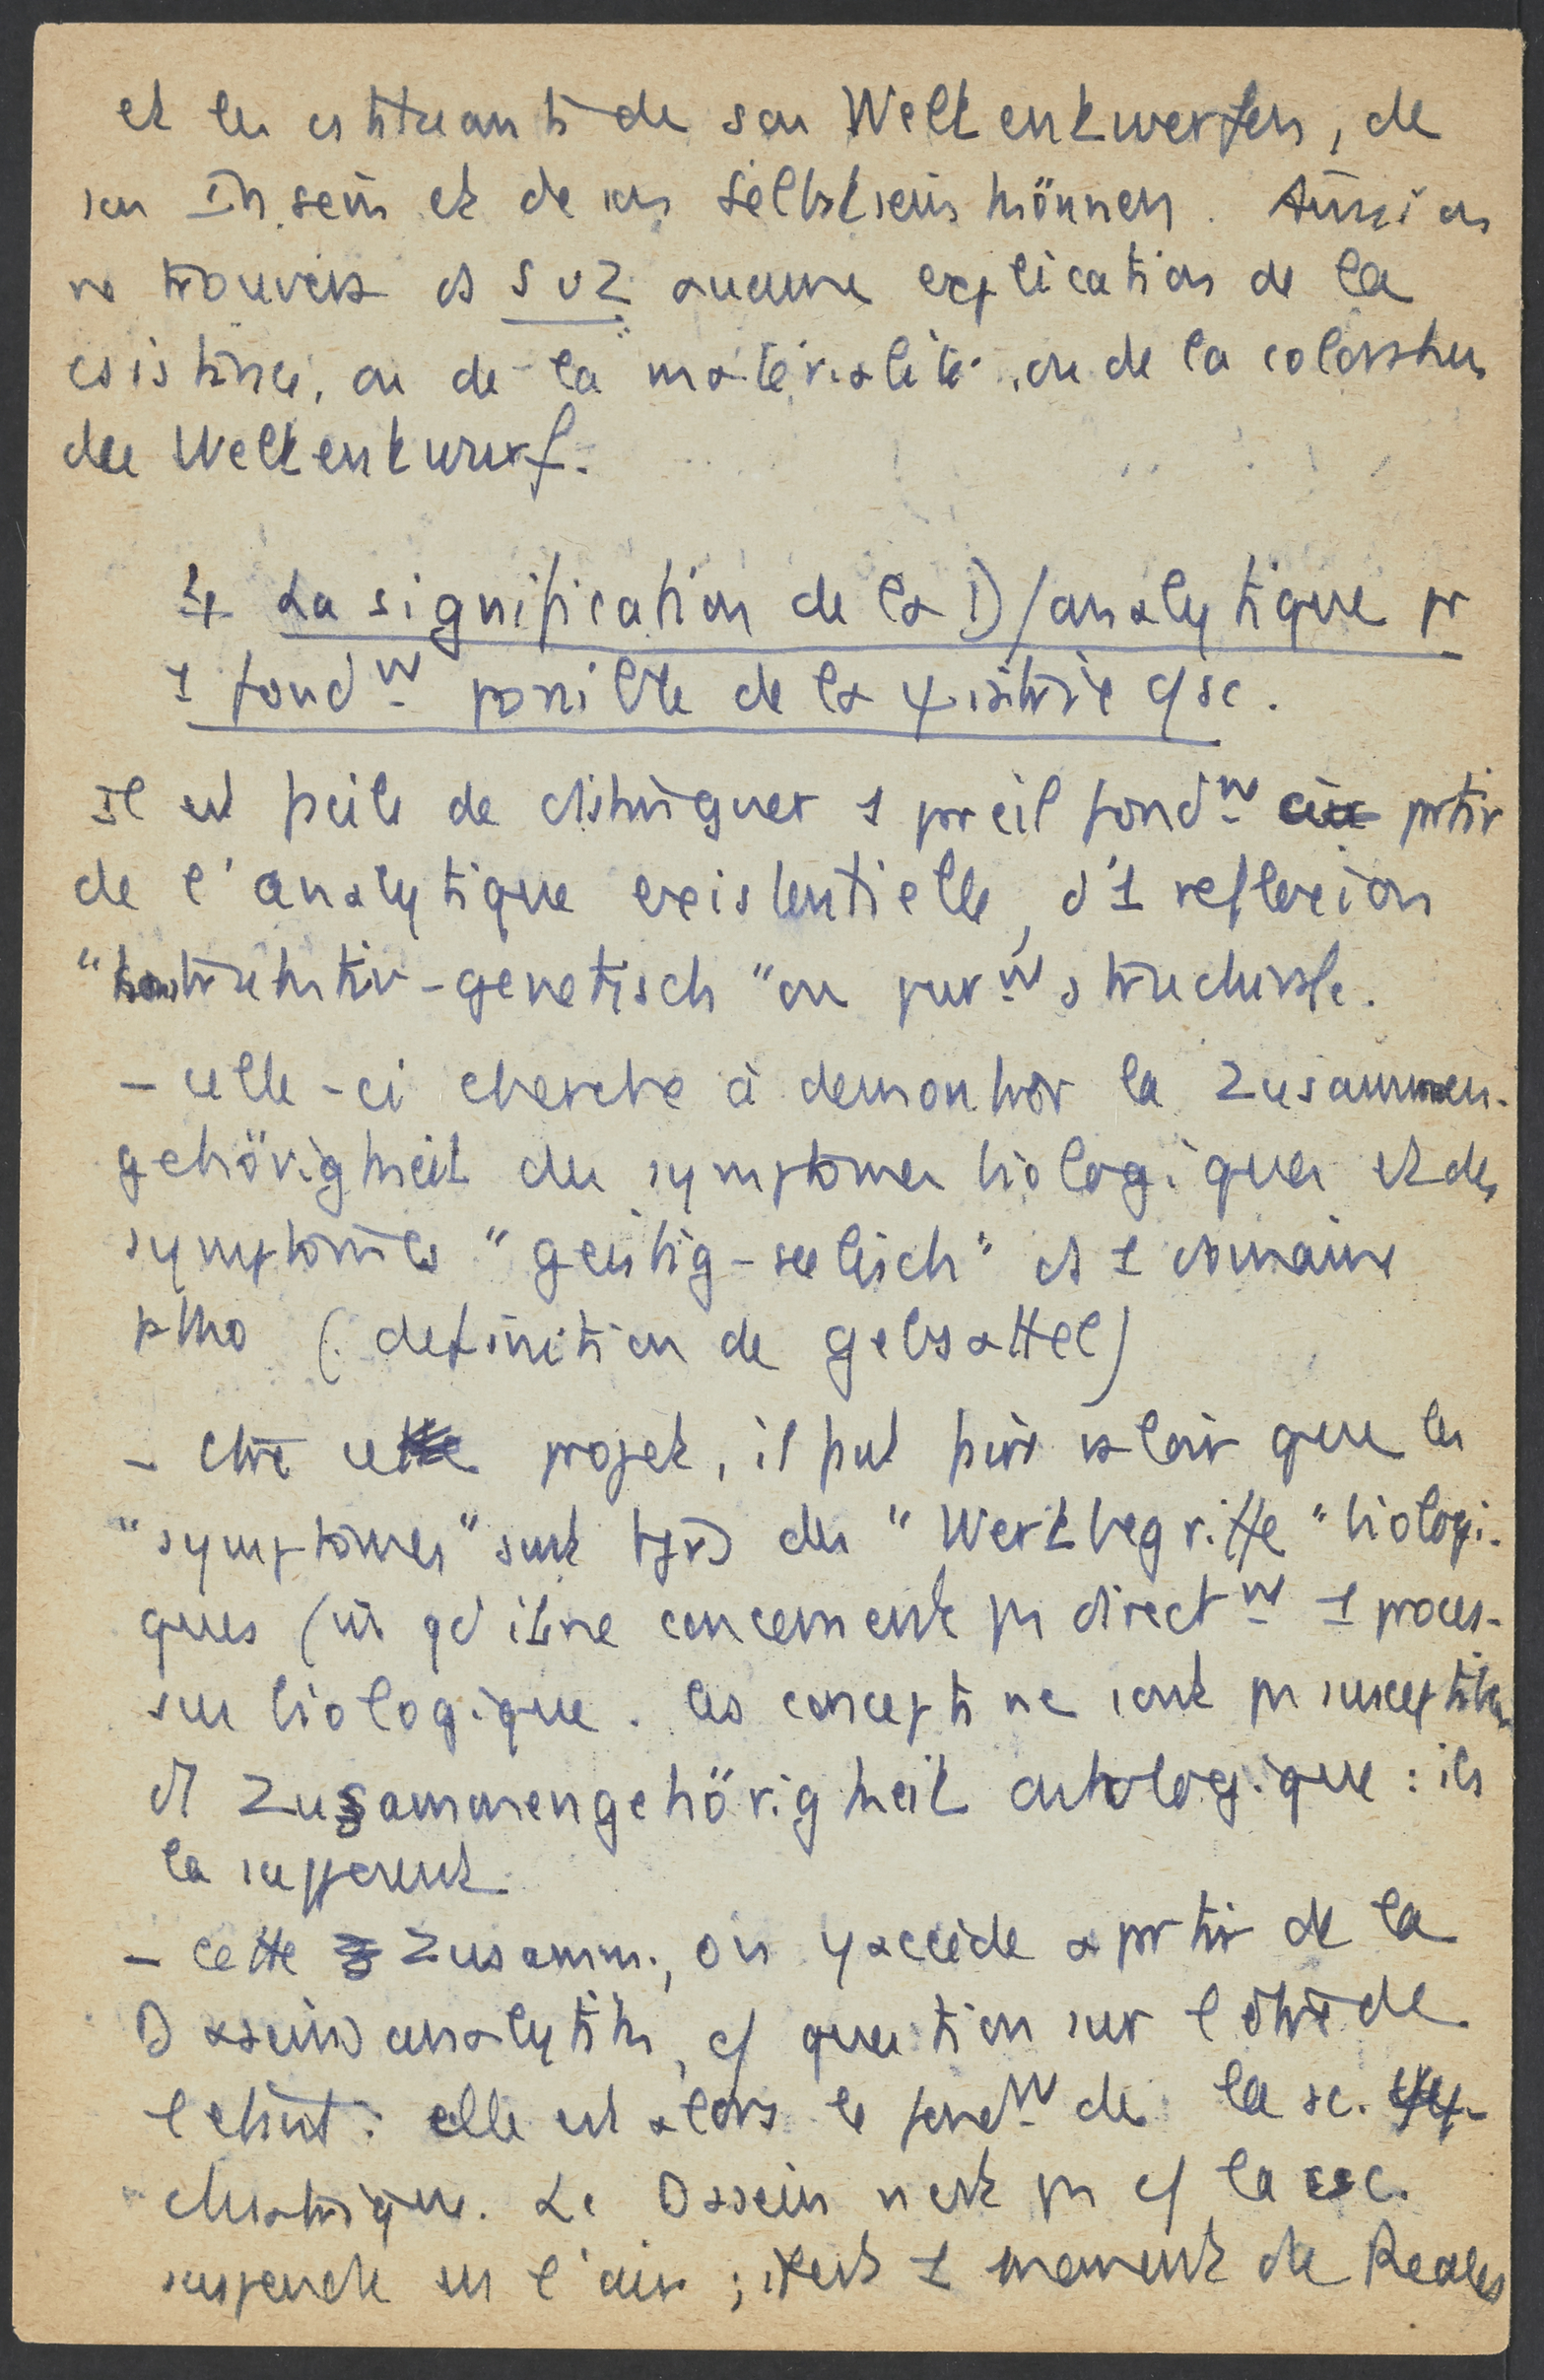 et les structurants de son Weltentwerfen, de
son In sein et de son Selbstseinkönnen. Aussi on
ne trouvera ds SuZ aucune explication de la
consistance, ou de la "matérialité", ou de la coloration
des Weltentwurf.
4 La signification de la D/analytique pr
1 fondm possible de la ψiatrie c/ sc.
Il est facile de distinguer 1 pareil fondm à partir
de l'analytique existentielle, d'1 reflexion
"konstruktiv-genetisch" ou purm structurale.
- celle-ci cherche à demontrer la Zusammen-
gehörigkeit des symptomes biologiques et des
symptomes "geistig-seelisch" ds 1 domaine
patho (definition de Gebsattel)
- Ctre ce projet, il faut faire valoir que les
"symptomes" sont tjrs des "Wertbegriffe" biologi-
ques (et qu'ils ne concernent pas directm 1 proces-
sus biologique. Ces concepts ne sont pas susceptibles
d'1 Zusammengehörigkeit ontologique : ils
la supposent.
- Cette Zusamm., on y accède à partir de la
Daseinsanalytik, c/ question sur l'être de
l'étant : elle est alors le fondm de la sc. psy-
chiatrique. Le Dasein n'est pas c/ la csc.
suspendu en l'air ; il est 1 moment de Reales